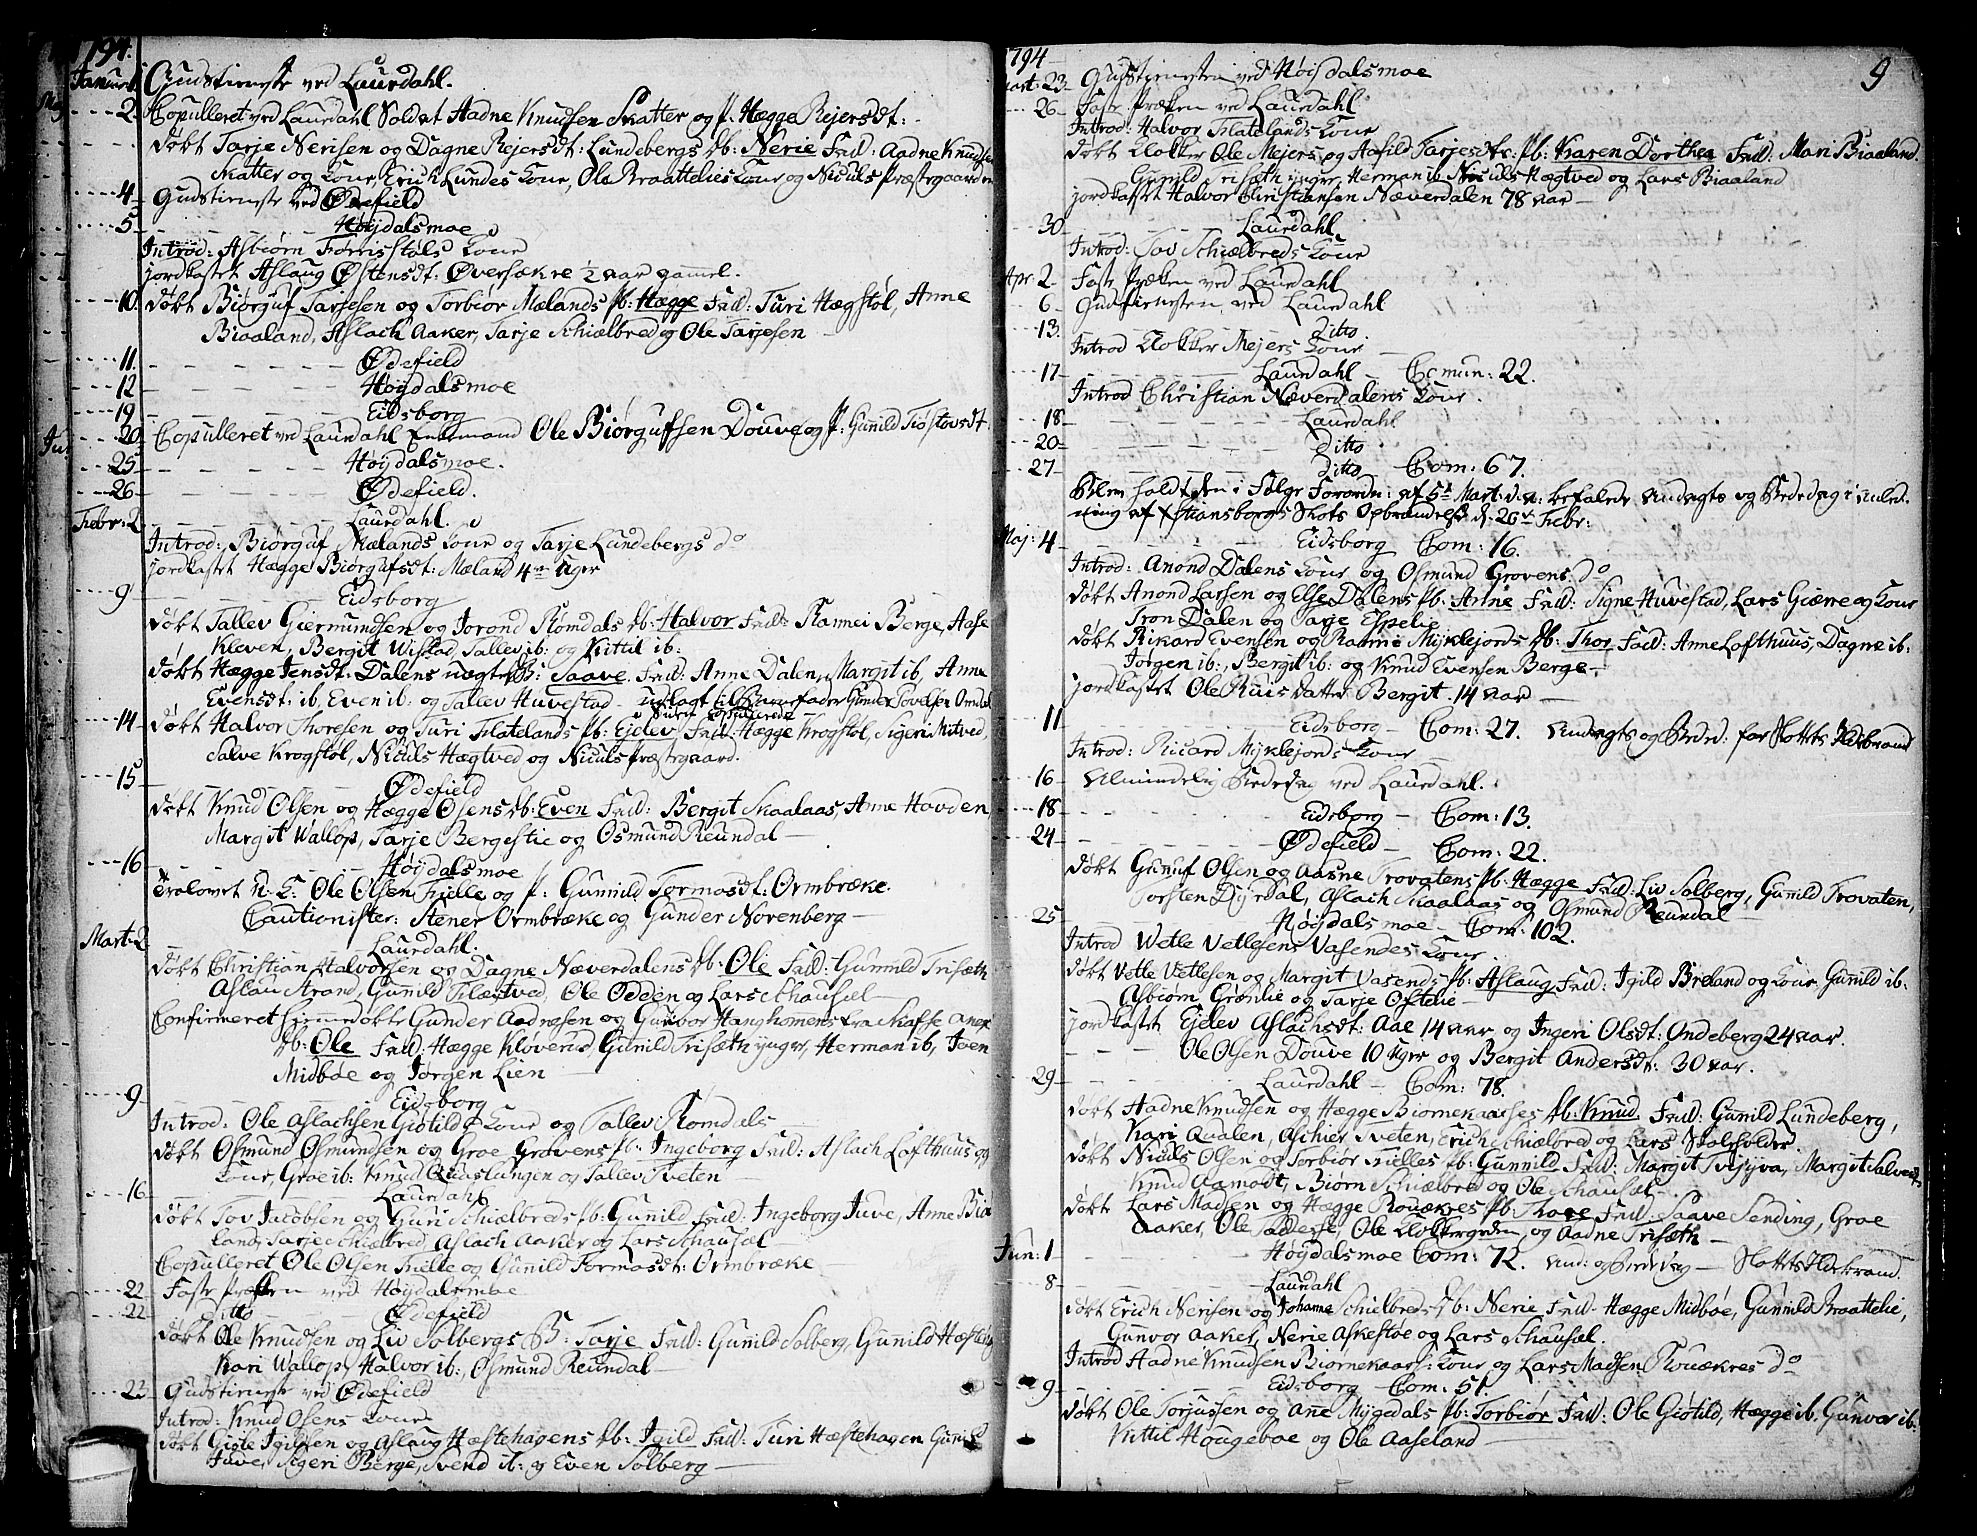 1794.
Januarii 1 Gudstieneste ved Laurdahl.
2 Copulleret ved Laurdahl Soldat Aadne Knudsen Skatter og P. Hægge Rejersdt:
døbt Tarje Nerisen og Dagne Rejersdt: Lundebergs db: Nerie Fad: Aadne Knudsen
Skatter og Kone, Erich Lundes Kone, Ole Braattelies Kone og Niculs Præstegaarden
4 Gudstieneste ved Ødefield
5 Høydalsmoe
Introd: Asbiørn Førrisstøls Kone
jordkastet Aslaug Østensdt: Øversækre 1/2 aar gammel.
10. døbt Biørguf Tarjesen og Torbiør Mælands pb: Hægge Fad: Turi Hægstøl, Anne
Biaaland, Aslach Aaker, Tarje Schiælbred og Ole Tarjesen
11. Ødefield
12 Høydalsmoe
19 Eidsborg
20 Copulleret ved Laurdahl Enkemand Ole Biørgufsen Douve og P: Gunild Tiøstovsdt.
25 Høydalsmoe.
26 Ødefield.
Febr: 2 Laurdahl.
Introd: Biørguf Mælands Kone og Tarje Lundebergs do
jordkastet Hægge Biørgufsdt: Mæland 4re Uger
9 Eidsborg
døbt Tallev Giermundsen og Jorond Romdals db: Halvor Fad: Rannei Berge, Aase
Kleven, Bergit Wistad, Tallev ib: og Kittil ib:
døbt Hægge Jensdt: Dalens uægte B: Saave Fad: Anne Dalen, Margit ib, Anne
Evensdt: ib, Even ib: og Tallev Huvestad - udlagt til Barnefader Gunder Tovelsen Omdal
siden copulerede
14 døbt Halvor Thoresen og Turi Flatelands pb: Ejelev Fad: Hægge Krogstøl, Sigeri Mitved,
Salve Krogstøl, Niculs Hægtved og Niculs Præstegaard.
15 Ødefield
døbt Knud Olsen og Hægge Osens db: Even Fad: Bergit Skaalaas, Anne Hovden
Margit Wallop, Tarje Bergestie og Osmund Reundal
16 Høydalsmoe
Trolovet U. K. Ole Olsen Trelle og P. Gunnild Tormosdt: Ormbræke.
Cautionister: Stener Ormbræke og Gunder Norenberg
Mart: 2 Laurdahl.
døbt Christian Halvorsen og Dagne Næverdalens db: Ole Fad: Gunnild Trisæth
Aslau Strand, Gunild Flæstved, Ole Odden og Lars Schausæl
Confirmeret hiemmedøbte Gunder Aadnesen og Gunvor Hanghommens fra Skafse Anex
db: Ole Fad: Hægge Kløverud, Gunild Trisæth ynger, Herman ib, Joen
Midbøe og Jørgen Lien
9 Eidsborg
Introd: Ole Aslachsen Giøtilds Kone og Tallev Romdals
døbt Osmund Osmundsen og Groe Grovens pb: Ingeborg Fad: Aslach Lofthuus og
Kone, Groe ib: Knud Quaslungen og Tallev Tveten
16 Laurdahl
døbt Tov Jacobsen og Guri Schiælbreds pb: Gunild Fad: Ingeborg Juve, Anne Bia
land, Tarje Schiælbred, Aslach Aaker og Lars Schausæl
Copulleret Ole Olsen Trelle og Gunild Tormosdt: Ormbræke
22 Faste Præken ved Høydalsmoe
22 Ditto Ødefield
døbt Ole Knudsen og Liv Solbergs B: Tarje Fad: Gunild Solberg, Gunild Hæstehag
Kari Wallop, Halvor ib: Osmund Reundal
23 Gudstieneste ved Ødefield
Introd: Knud Osens Kone
døbt Giøle Igildsen og Aslaug Hæstehagens db: Igild Fad: Turi Hæstehagen Gunild
Juve, Sigeri Berge, Svend ib: og Even Solberg
1794 9
Mart: 23 Gudstienesten ved Høisdalsmoe
26 Faste Præken ved Laurdahl
Introd: Halvor Flatelands Kone
døbt Klokker Ole Mejers og Aasild Tarjesdtr: pb: Karen Dorthea Fad: Mari Biaaland.
Gunild Trisæth ynger, Herman ib Niculs Hægtved og Lars Biaaland
jordkastet Halvor Christiansen Næverdalen 78 aar
30 Laurdahl
Introd: Tov Schiælbreds Kone
Apr: 2 Faste Præken ved Laurdahl
6 Gudstienesten ved Laurdahl
13 Ditto
Introd Klokker Mejers Kone
17 Laurdahl Comun: 22.
Introd Christian Næverdalens Kone
18 Laurdahl
20 Ditto
27 Ditto Com: 67.
Blev holdt den i Følge Forordn: af 5te Mart: d. a: befalede Andagts og Bededag i Anled
ning af Xstiansborgs Slots Opbrændelse d. 26de Febr:
Maj: 4 Eidsborg Com: 16.
Introd: Anond Dalens Kone og Osmund Grovens do
døbt Anond Larsen og Else Dalens pb: Anne Fad: Signe Huvestad, Lars Giærre og Kone
Tron Dalen og Tarje Espelie
døbt Rikard Evensen og Rannei Myklejords db: Thor Fad: Anne Lofthuus, Dagne ib:
Jørgen ib:, Bergit ib: og Knud Evensen Berge
jordkastet Ole Ruis datter Bergit 14 aar
11 Eidsborg Com: 27. Andagts og Beded: for Slottets Ildebrand
Introd: Ricard Myklejords Kone
16 Almindelig Bededag ved Laurdahl.
18 Eidsborg Com: 13.
24 Ødefield Com: 22.
døbt Gunuf Olsen og Aasne Trovatens pb: Hægge Fad: Liv Solberg, Gunild Trovaten,
Torsten Dyrdal, Aslach Skaalaas og Osmund Reundal
25 Høydalsmoe Com: 102.
Introd Wetle Vetlesens Vasendes Kone
døbt Vetle Vetlesen og Margit Vasends pb: Aslaug Fad: Igild Breland og Kone, Gunild ib:
Asbiørn Grønlie og Tarje Ostelie
jordkastet Ejelev Aslachsdt: Aae 14 aar og Ingeri Olsdt: Ondeberg 24 aar.
Ole Olsen Douve 10 Uger og Bergit Andersdt: 30 aar.
29 Laurdahl Com: 78.
døbt Aadne Knudsen og Hægge Biørnekaasses db: Knud Fad: Gunild Lundeberg,
Kari Qualen, Aschier Tveten, Erich Schiælbred og Lars Skoleholder
døbt Niculs Olsen og Torbiør Trælles pb: Gunnild Fad: Margit Tvisyva, Margit Salvesdt
Knud Aamodt, Biørn Schiælbred og Ole Schausæl
døbt Lars Madsen og Hægge Rouækres pb: Thore Fad: Saave Sending, Groe
Aaker, Ole Tadesse, Ole Klokkergrden, og Aadne Trisæth
Jun: 1 Høydalsmoe Com: 72. And: og Bededag - Slottets Ildebrand.
8 Laurdahl
døbt Erich Nerisen og Johanne Schiælbreds db: Nerie Fad: Hægge Midbøe, Gunnild Braattelie,
Gunvor Aaker, Nerie Askestøe og Lars Schausæl.
Introd Aadne Knudsen Biørnekaass: Kone og Lars Madsen Rouækres do
9 Eidsborg Com: 51.
døbt Ole Torjussen og Ane Mygedals pb: Torbiør Fad: Ole Giøtild, Hægge ib. Gunvor ib:
Kittil Hougeboe og Ole Aaseland